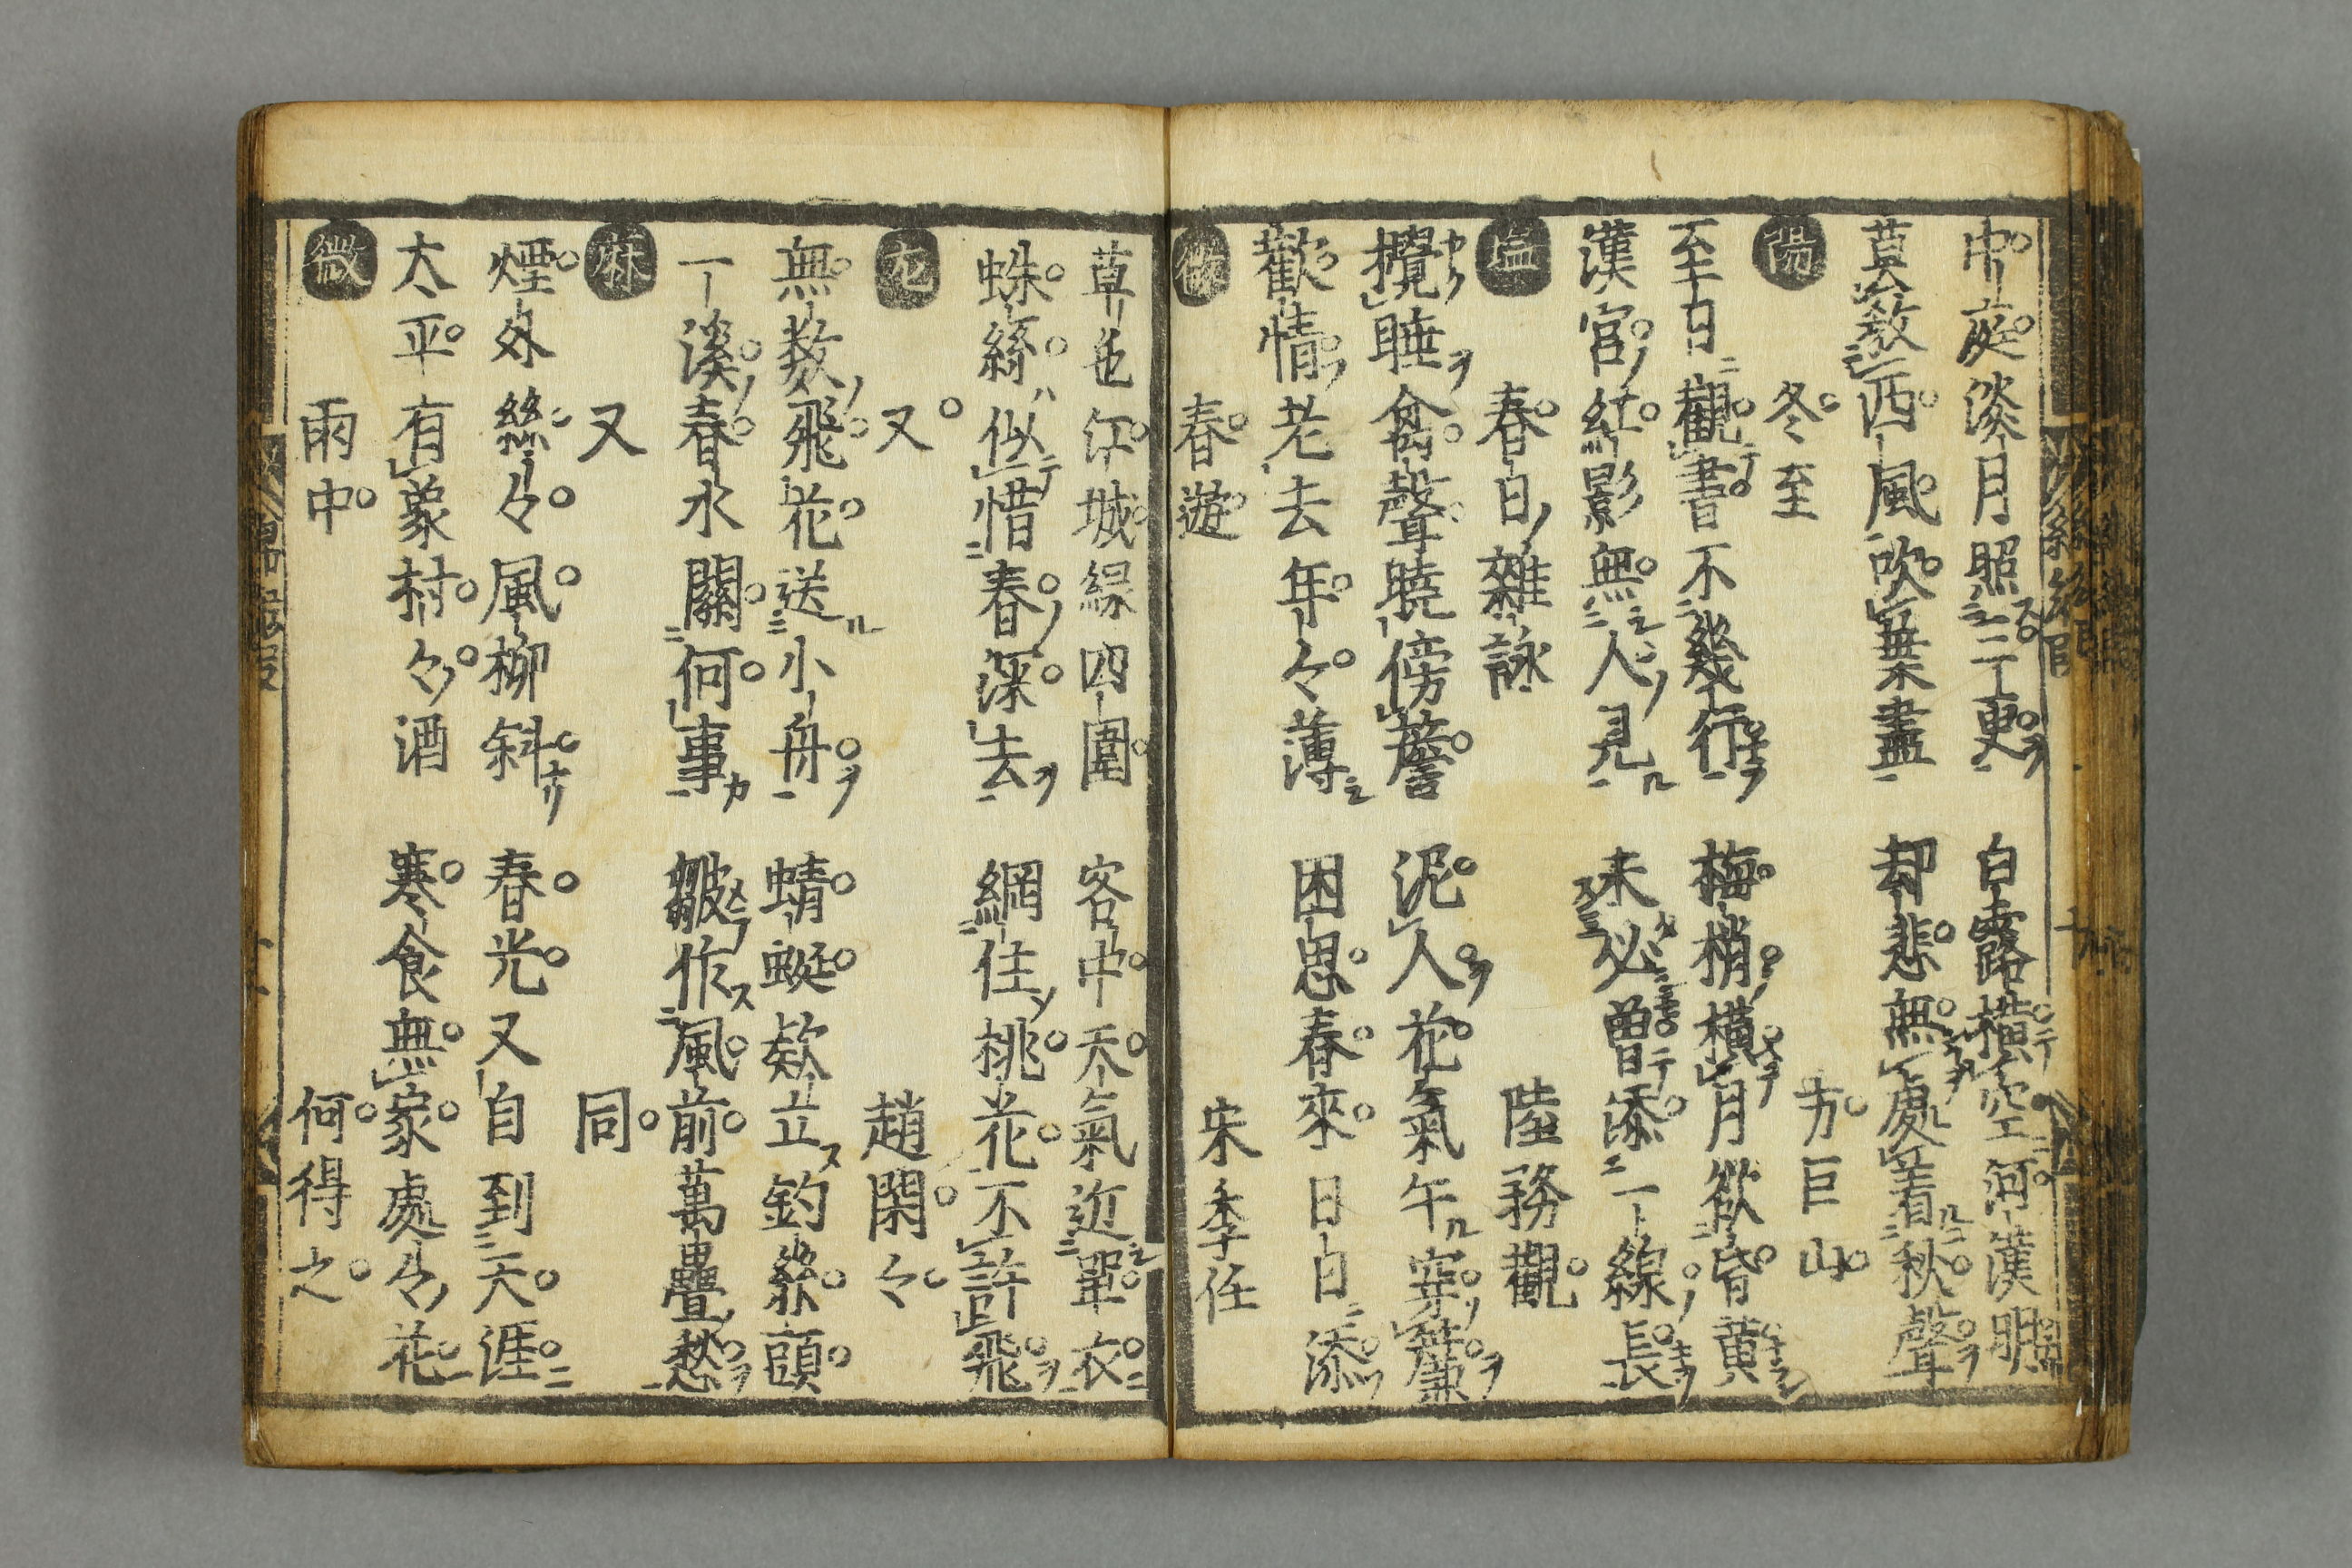 中庭淡月照三更 白露横空河漢明
莫教西風吹葉盡 却悲無處着秋聲
陽 冬至 方巨山
至日觀書不幾行 梅梢横月欲昏黄
漢宮紅影無人見 未必曽添一線長
塩 春日雜詠 陸務觀
攪睡禽聲曉傍簷 泥人花氣午穿簾
歡情老去年々薄 困思春來日日添
微 春遊 宋季任
草色江城緑四圍 客中天氣近單衣
蛛絲似惜春深去 網住桃花不許飛
尤 又 趙閑々
無数飛花送小舟 蜻蜓欵立釣絲頭
一溪春水關何事 皺作風前萬疊愁
麻 又 同
煙外絲々風柳斜 春光又自到天涯
太平有象村々酒 寒食無家處々花
微 雨中 何得之